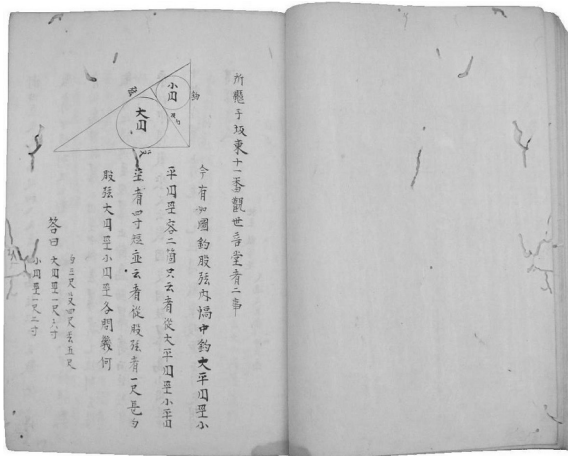 所懸于坂東十一番觀世音堂者二事
今有如圖鈎股弦内隔中鈎大平円巠小
平円巠容二箇只云者從大平円巠小平円
巠者四寸短並云者從股弦者一尺長勾
股弦大円巠小円巠各問幾何
答曰
勾三尺股四尺弦五尺
大円巠一尺六寸
小円巠一尺二寸
小円
大円
弦
股